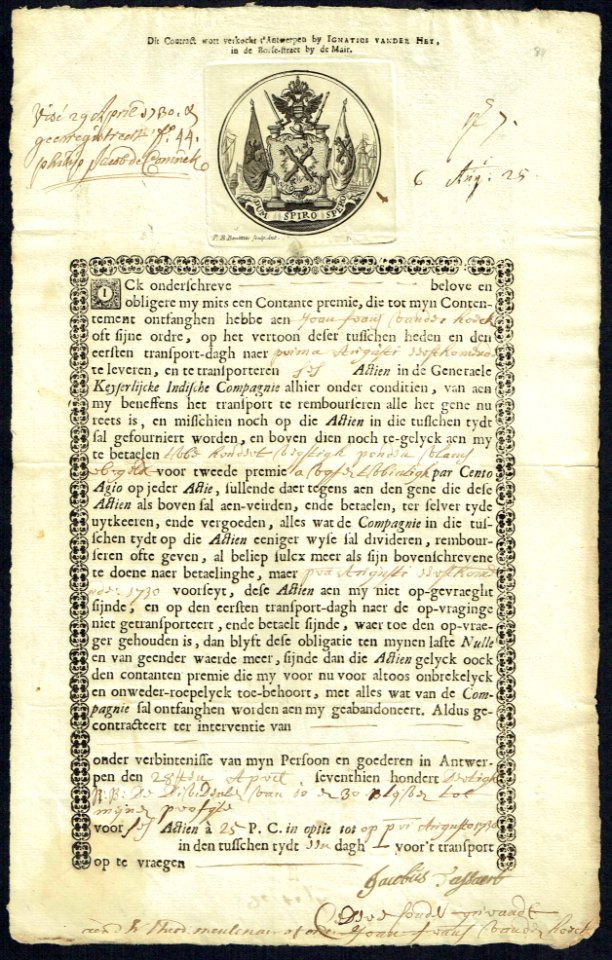 Dit Contract wort verkocht t'Antwerpen by IGNATIUS VANDER HEY,
in de Borse-straet by de Mair.
Visé 29 April 1730. &
geenregistreert N.º 44.
6 Aug: 25.
DUM SPIRO SPERO
P. B. Bouttats sculp. Ant.
ICk onderschreve belove en
obligere my mits een Contante premie, die tot myn Conten-
tement ontfanghen hebbe aen Joan frans vander
oft sijne ordre, op het vertoon deser tusschen heden en den
eersten transport-dagh naer prima Augusti
te leveren, en te transporteren Actien in de Generaele
Keyserlijcke Indische Compagnie alhier onder conditien, van aen
my beneffens het transport te rembourseren alle het gene nu
reets is, en misschien noch op die Actien in die tusschen tydt
sal gefourniert worden, en boven dien noch te-gelyck aen my
te betaelen hondert ponden vlams
voor tweede premie par Cento
Agio op jeder Actie, sullende daer tegens aen den gene die dese
Actien als boven sal aen-veirden, ende betaelen, ter selver tyde
uytkeeren, ende vergoeden, alles wat de Compagnie in die tus-
schen tydt op die Actien eeniger wyse sal divideren, rembour-
seren ofte geven, al beliep sulcx meer als sijn bovenschrevene
te doene naer betaelinghe, maer Augusti
1730 voorseyt, dese Actien aen my niet op-gevraeght
sijnde, en op den eersten transport-dagh naer de op-vraginge
niet getransporteert, ende betaelt sijnde, waer toe den op-vrae-
ger gehouden is, dan blyft dese obligatie ten mynen laste Nulle
en van geender waerde meer, sijnde dan die Actien gelyck oock
den contanten premie die my voor nu voor altoos onbrekelyck
en onweder-roepelyck toe-behoort, met alles wat van de Com-
pagnie sal ontfanghen worden aen my geabandoneert. Aldus ge-
contracteert ter interventie van
onder verbintenisse van myn Persoon en goederen in Antwer-
pen den 28 April seventhien hondert Dertigh
van 10 en 30 tot
mijne
voor ses Actien à 25 P. C. in optie tot op Augusto 1730
in den tusschen tydt een dagh voor't transport
op te vraegen
Jacobus
Joan frans vander